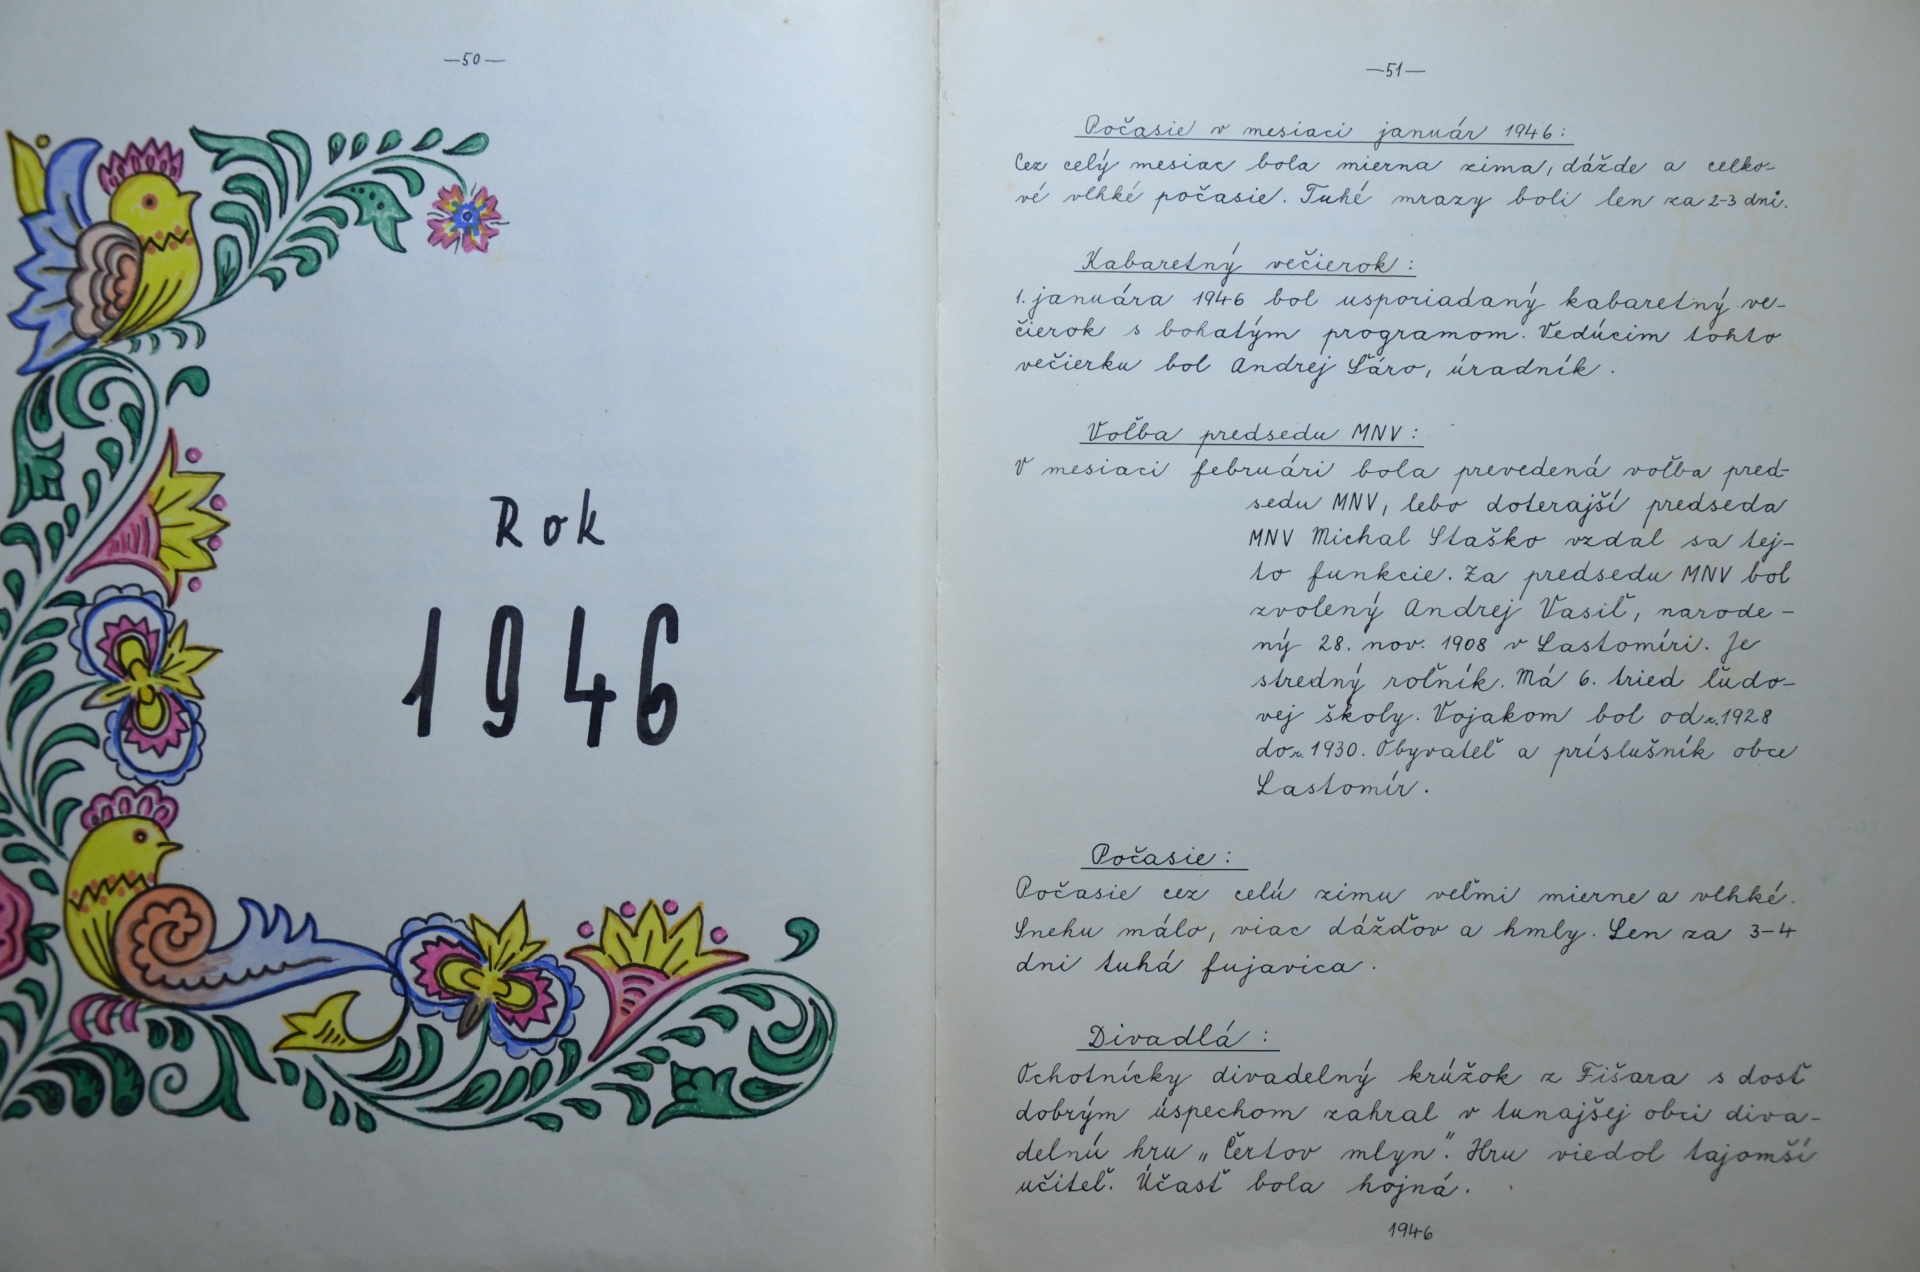 —50—
Rok
1946
—51—
Počasie v mesiaci január 1946:
Cez celý mesiac bola mierna zima, dážde a celko-
vé vlhké počasie. Tuhé mrazy boli len za 2-3 dni.
Kabaretný večierok:
1. januára 1946 bol usporiadaný kabaretný ve-
čierok s bohatým programom. Vedúcim tohto
večierku bol Andrej Šáro, úradník.
Voľba predsedu MNV:
V mesiaci februári bola prevedená voľba pred-
sedu MNV, lebo doterajší predseda
MNV Michal Staško vzdal sa tej-
to funkcie. Za predsedu MNV bol
zvolený Andrej Vasiľ, narode-
ný 28. nov. 1908 v Lastomíri. Je
stredný roľník. Má 6. tried ľudo-
vej školy. Vojakom bol od r. 1928
do r. 1930. Obyvateľ a príslušník obce
Lastomír.
Počasie:
Počasie cez celú zimu veľmi mierne a vlhké.
Snehu málo, viac dážďov a hmly. Len za 3-4
dni tuhá fujavica.
Divadlá:
Ochotnícky divadelný krúžok z Fišara s dosť
dobrým úspechom zahral v tunajšej obci diva-
delnú hru „Čertov mlyn". Hru viedol tajomší
učiteľ. Účasť bola hojná.
1946